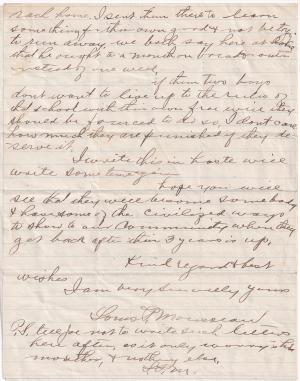 each home. I sent them there to learn
something for their own good & not be try
to run away, we both say here at
that he ought to a month on bread & water
instead of one week.
if them two boys
dont want to live up to the rules of
the school with their own free will they
should be forced to do so, I dont care
how much they are punished if they de-
serve it.
I write this in haste will
write some time again
hope you will
see that they will become somebody
& have some of the civilized ways
to show to our Community when they
get back after their 3 years is up.
Kind regard & best
wishes
I am very sincerely yours
Louis P. Mousseau
P.S. tell Joe not to write such letters
here after, as it only worry his
mother, & nothing else,
L.P.M.